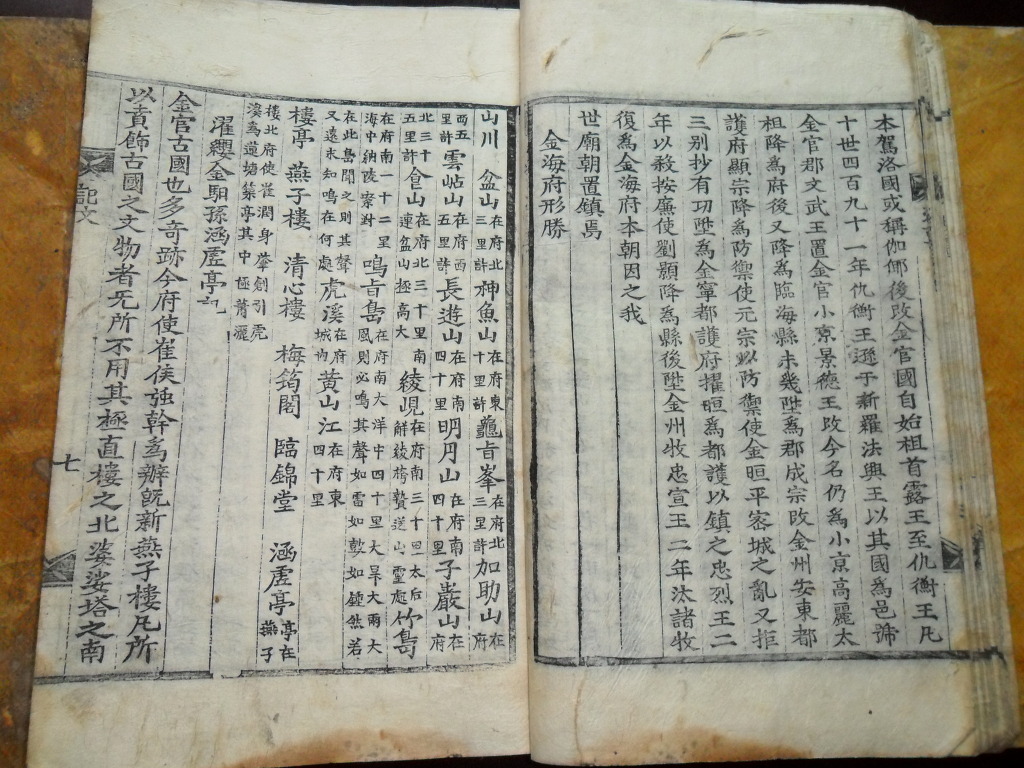 本駕洛國或稱伽倻後改金官國自始祖首露王至仇衡王凡
十世四百九十一年仇衡王遜于新羅法興王以其國爲邑號
金官郡文武王置金官小京景德王改今名仍爲小京高麗太
祖降爲府後又降爲臨海縣未幾陞爲郡成宗改金州安東都
護府顯宗降爲防禦使元宗以防禦使金晅平密城之亂又拒
三别抄有功陞爲金寧都護府擢晅爲都護以鎮之忠烈王二
年以殺按廉使劉顥降爲縣後陞金州牧忠宣王二年汰諸牧
復爲金海府本朝因之我
世廟朝置鎮焉
金海府形勝
山川 盆山在府北三里許神魚山在府東十里許龜旨峯在府北三里許加助山在府
西五里許雲岾山在府西五里許長遊山在府南四十里明月山在府南四十里子巖山在府
北三十五里許仚山在府北三十里連盆山極高大綾峴在府南三十里
在府南一十二里海中
鳴旨島在府南大洋中四十里大旱大雨大風則必鳴其聲如雷如鼓如鍾然若
在此島聞之則其聲又遠未知鳴在何處虎溪在府城内黄山江在府東四十里
樓亭 燕子樓 清心樓 梅筠閣 臨錦堂 涵虛亭亭在燕子
樓北府使崔潤身肇創引虎溪爲蓮塘築亭其中極菁灑
濯纓金馹孫涵虛亭記
金官古國也多奇跡今府使崔侯強幹爲辦旣新燕子樓凡所
以賁飾古國之文物者无所不用其極直樓之北婆娑塔之南
記文
七